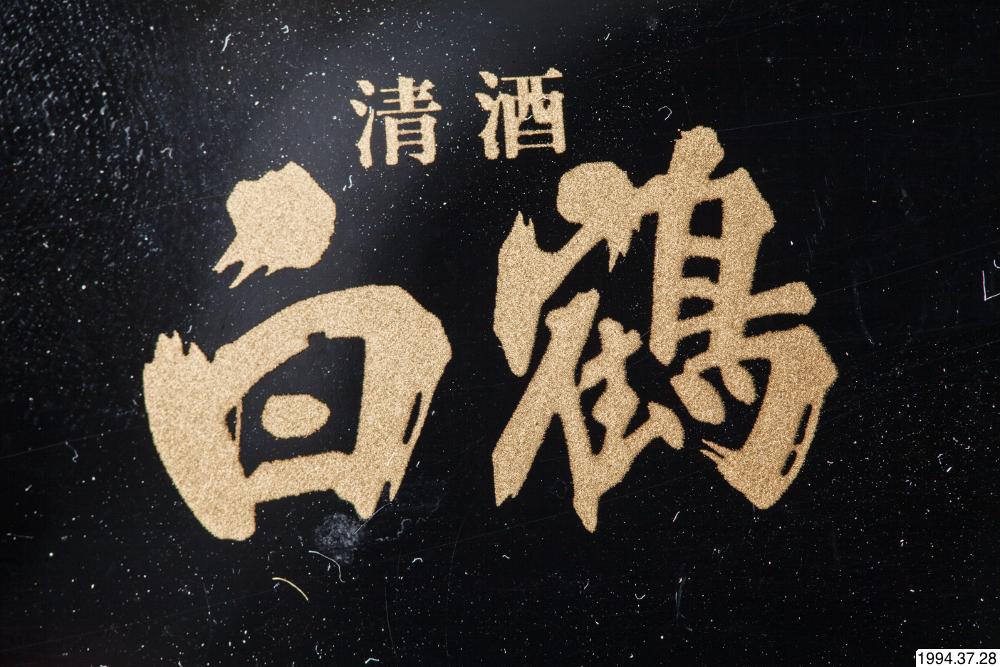 清酒
白鶴
1994.37.28